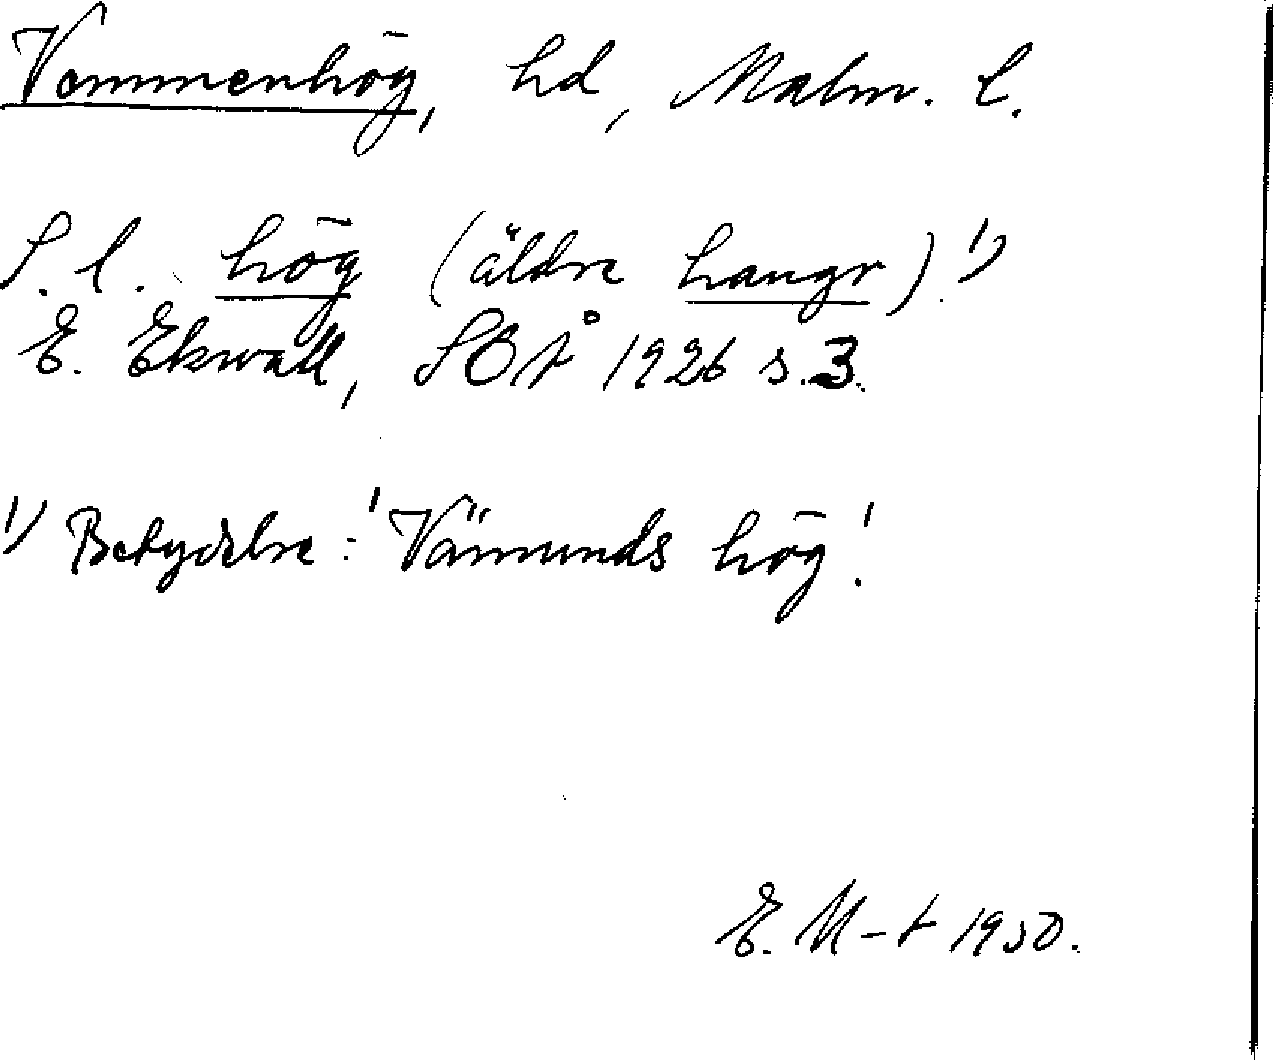 Vemmenhög, hd, Malm. l.
S. l. hög (äldre haugr).¹⁾
E. Ekwall, SOÅ 1926 s. 3.
¹⁾ Betydelse: 'Vämunds hög'.
E. M-t 1950.